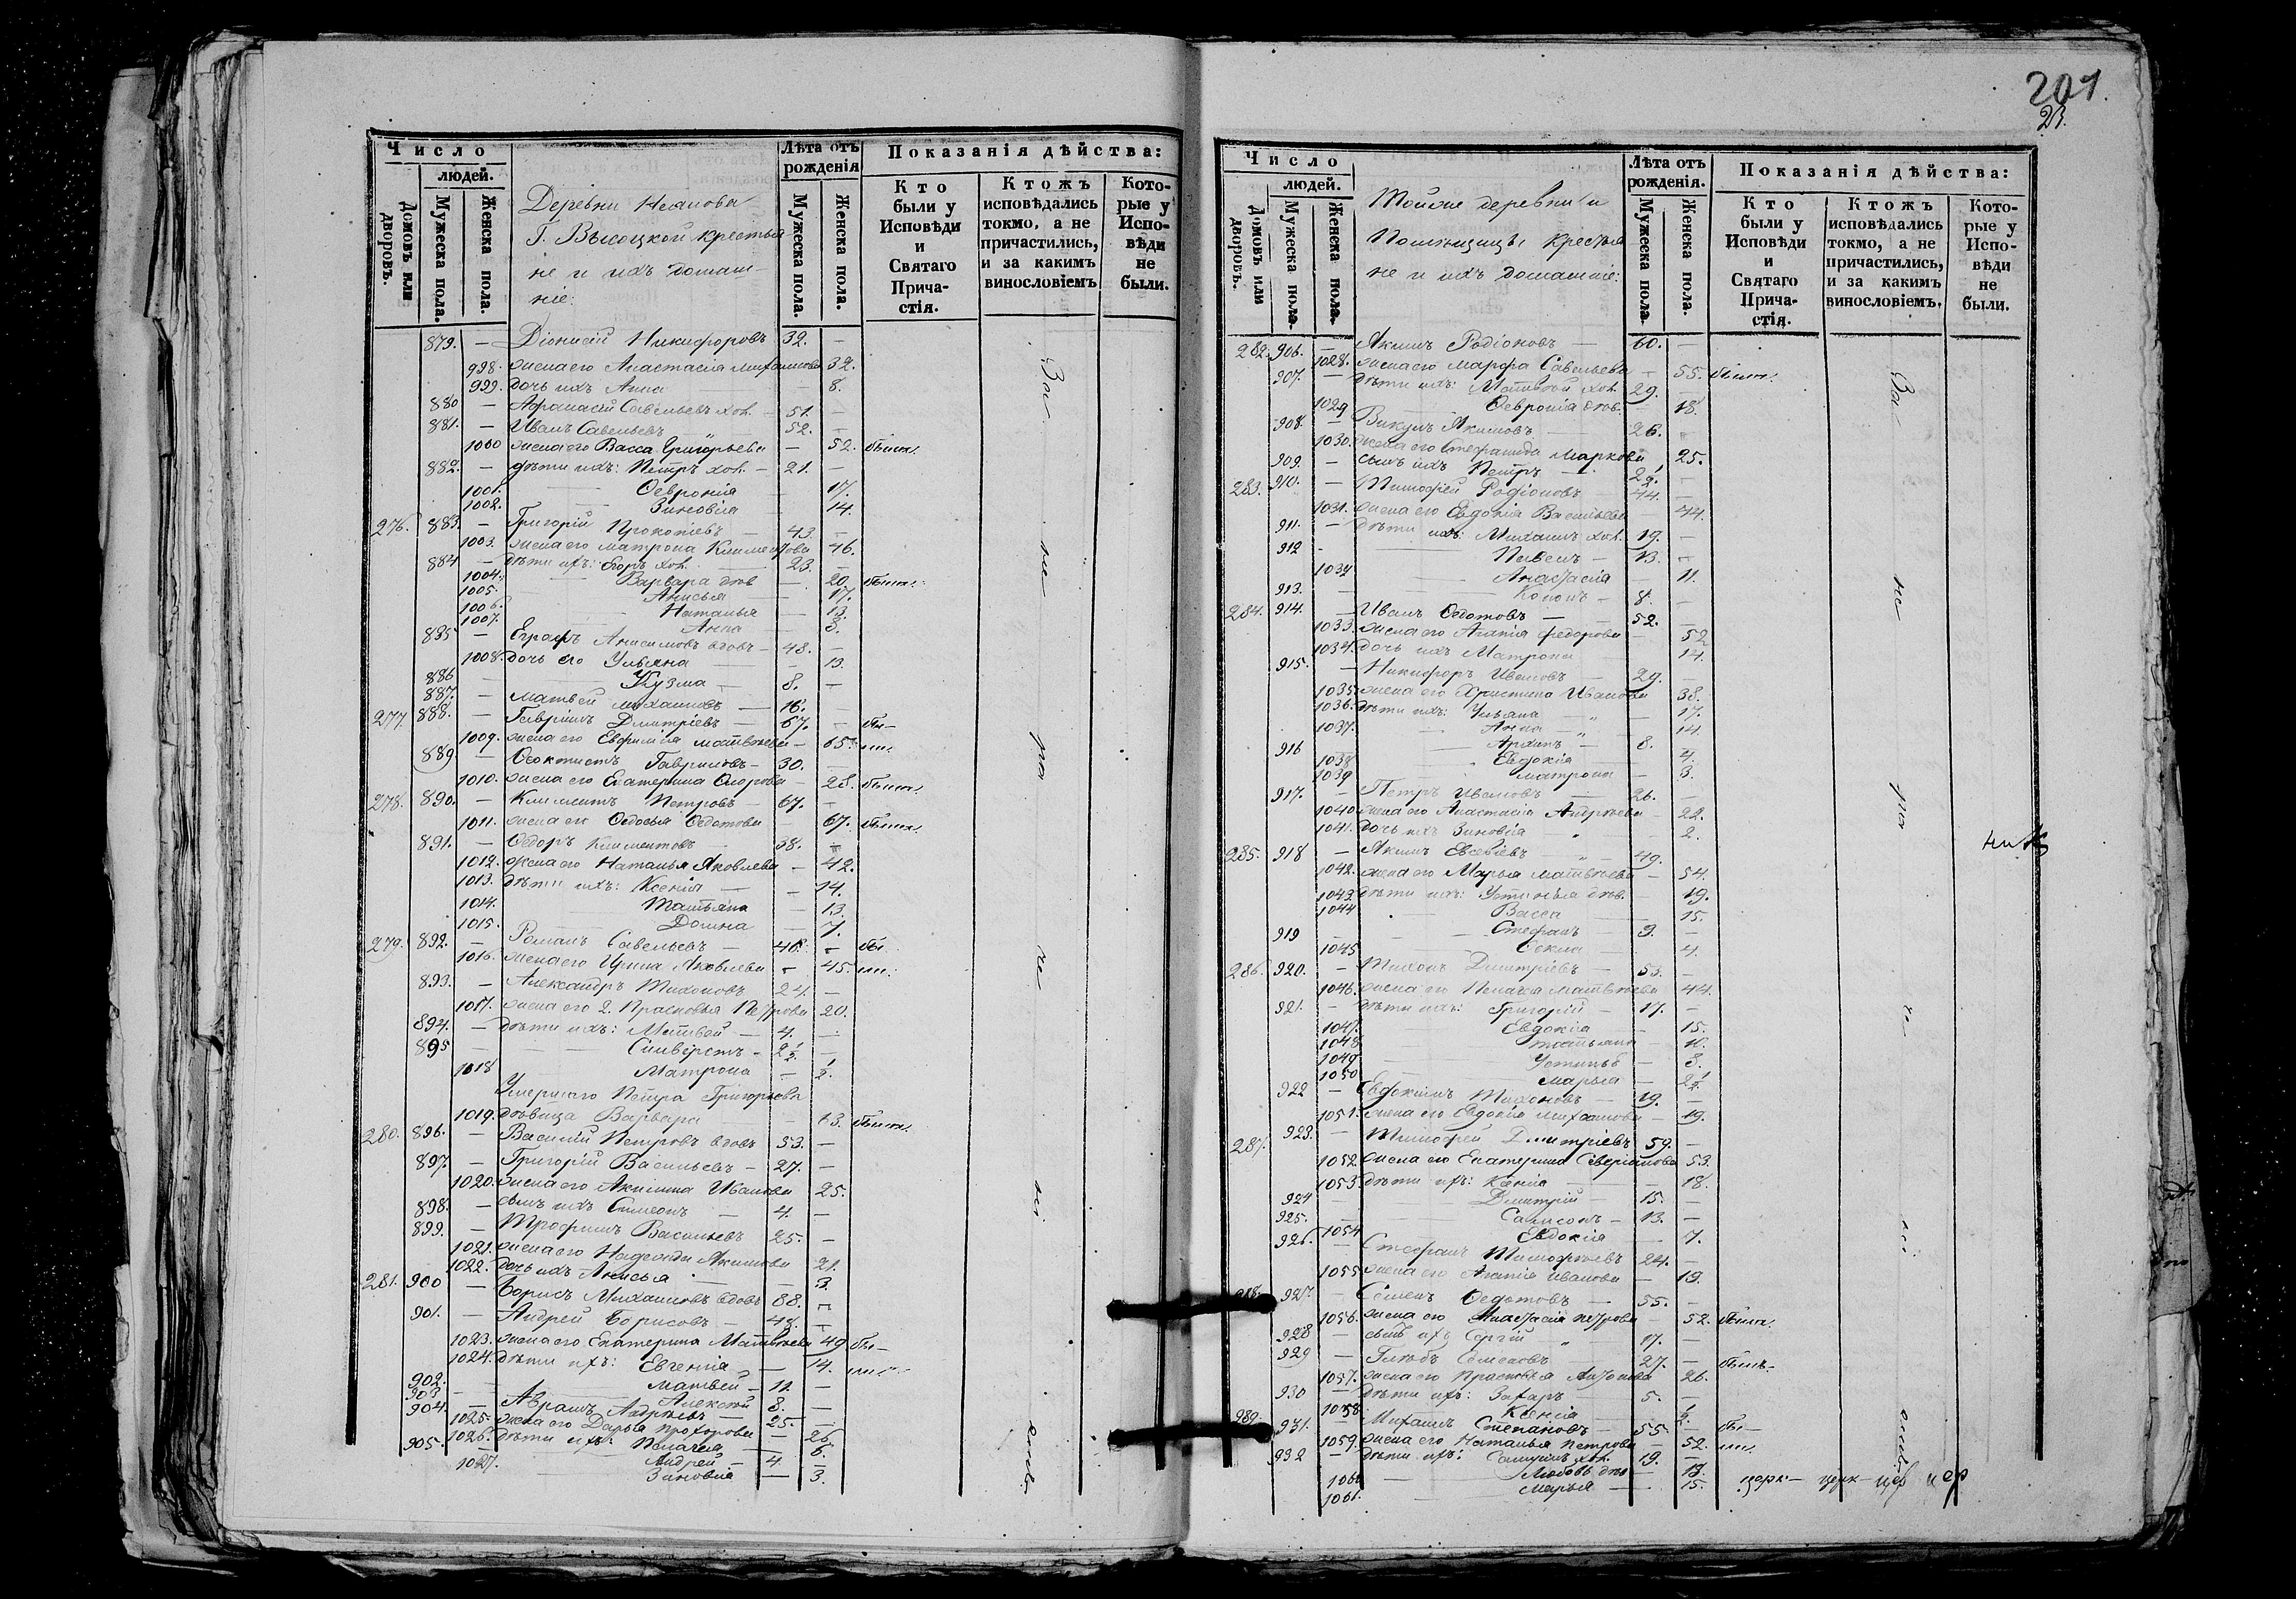 201.
23.
Число
людей.
Домовъ или дворовъ.
Мужеска пола.
Женска пола.
Деревни
Г. Высоцкой крестья
не и ихъ домаш-
ніе:
Лѣта отъ рожденія
Мужеска пола.
Женска пола.
Показанія дѣйства:
Кто были у Исповѣди и Святаго Прича-стія.
Ктожъ исповѣдались токмо, а не причастились, и за какимъ винословіемъ
Кото-рые у Испо-вѣди не были.
879. — Діонисій Никифоровъ 32. —
998. жена его Анастасія 32.
999. дочь ихъ Анна — 8.
880 — Афанасій Савельевъ хол. — 51. —
881. — Иванъ Савельевъ 52. —
1000 жена его Васса Григорьева — 52. были.
882. — дѣти ихъ: Петръ хол. — 21. —
1001. Ѳевронія 17.
1002. Зиновія 14.
276. 883. — Григорій Прокопіевъ — 43. —
1003. жена его Матрона Климентова 46.
884 — дѣти ихъ: Егоръ хол. 23. —
1004. Варвара дѣв — 20. были.
1005. Анисья — 17.
1006. Наталья — 13.
1007. Анна
885 — Анисимовъ вдовъ — 48. —
1008. дочь его Ульяна — 13.
886 Кузма — 8. —
887. — Матвей Михаиловъ — 16. —
277. 888. — Гавріилъ Дмитріевъ — 67. — бы—
1009. жена его Евфимія Матвѣева — 65. ли.
889 — Ѳеоктистъ Гавриловъ — 30. —
1010. жена его Екатерина 28. были.
278. 890. — Климентъ Петровъ — 67. —
1011. жена его Ѳедосья Ѳедотова 67. были.
891. — Ѳедоръ Климентовъ — 38. —
1012. жена его Наталья Яковлева — 42.
1013. дѣти ихъ: Ксенія — 14.
1014. Татьяна — 13.
1015. Домна — 7.
279. 892. — Романъ Савельевъ — 48. — бы
1016. жена его Ирина Яковлева — 45. ли.
893. — Александръ Тихоновъ 24. —
1017. жена его 2. Прасковья Петрова 20.
894. — дѣти ихъ: Матвей — 4. —
895 — Силверстъ — 2½ —
1018 Матрона — ½.
Умершаго Петра Григорьева
1019. дѣвица Варвара 63. были.
280. 896. — Василій Петровъ вдовъ 53. —
897. — Григорій Васильевъ — 27. —
1020. жена его Акилина Иванова 25.
898. — сынъ ихъ Симеонъ — 4. —
899. — Трофимъ Васильевъ 25. —
1021. жена его Надежда Акимова 21.
1022. дочь ихъ Анисья — 3.
281. 900 — Борисъ Михаиловъ вдовъ 88. —
901. — Андрей Борисовъ — 48. —
1023. жена его Екатерина Матвѣева 49 бы—
1024. дѣти ихъ: Евгенія — 14. ли
902. Матвей — 11. —
903 — Алексѣй 8. —
904. — Абрамъ Андреевъ — 25. —
1025. жена его Дарья Прохорова — 26
1026. дѣти ихъ: Пелагея — 6.
905. Андрей — 4. —
1027. Зиновія — 3.
За
не
ра
не
ні
емъ
Число
людей.
Домовъ или дворовъ.
Мужеска пола.
Женска пола.
Тойже деревни и
Помѣщицы крестья
не и ихъ домашніе:
Лѣта отъ рожденія.
Мужеска пола.
Женска пола.
Показанія дѣйства:
Кто были у Исповѣди и Святаго Прича-стія.
Ктожъ исповѣдались токмо, а не причастились, и за какимъ винословіемъ.
Кото-рые у Испо-вѣди не были.
282. 906. — Акимъ Родіоновъ — 60. —
1028. жена его Марфа Савельева — 55. были.
907. — дѣти ихъ: Матвей хол. 29.
1029 Ѳевронія дѣв. — 18.
908. — Викулъ Якимовъ — 26. —
1030. жена его Стефанида Маркова 25.
909. — сынъ ихъ Петръ — 2½ —
283. 910. — Тимофей Родіоновъ — 44. —
1031. жена его Евдокія Васильева — 44.
911. — дѣти ихъ: Михаилъ хол. 19. —
912 - Павелъ — 13. —
1032 Анастасія — 11.
913. — Кононъ — 8. —
284. 914. — Иванъ Ѳедотовъ — 52. —
1033. жена его Агапія Федорова — 52
1034. дочь ихъ Матрона 14.
915. — Никифоръ Ивановъ — 29. —
1035. жена его Христина Иванова 38.
1036. дѣти ихъ: Ульяна — 17.
1037. Анна — 14.
916 Архипъ — 8. —
1038 Евдокія — 4.
1039 Матрона — 3.
917. — Петръ Ивановъ — 26. —
1040 жена его Анастасія Андреева — 22.
1041. дочь ихъ Зиновія — 2.
285. 918 — Якимъ Евсевіевъ — 49.
1042. жена его Марья Матвѣева — 54.
1043. дѣти ихъ: Устинья дѣв. — 19.
1044 Васса — 15.
919 — Стефанъ — 9. —
1045 Ѳекла — 4.
286. 920. — Тихонъ Дмитріевъ — 53. —
1046. жена его Пелагея Матвѣева 44.
921. — дѣти ихъ: Григорій — 17. —
1047. Евдокія — 15.
1048 Татьяна — 10.
1049 Устинья — 8.
1050 Марья — 2½
922 — Евдокимъ Тихоновъ — 19. —
1051. жена его Евдокія Михаилова — 19.
287. 923. — Тимофей Дмитріевъ 59. —
1052. жена его Екатерина Северіанова 53.
1053. дѣти ихъ: Ксенія — 18.
924 Дмитрій — 15. —
925. Самсонъ — 13. —
1054 Евдокія — 7.
926. — Стефанъ Тимофеевъ 24. —
1055 жена его Агапія Иванова — 19.
927 — Семенъ Ѳедотовъ — 55. —
1056. жена его Анастасія Петрова 52. были.
928 — сынъ ихъ Сергій 17. —
929 — Глѣбъ Семеновъ — 27. — были—
1057. жена его Прасковья 26.
930 — дѣти ихъ: Захаръ — 5. —
1058 Ксенія — ½.
289. 931. — Михаилъ Степановъ — 55 — бы—
1059. жена его Наталья Петрова — 52. ли.
932 — дѣти ихъ: хол. 19. —
1060 Любовь дѣв — 19.
1061. Марья — 15.
За
не
ра
не
ні
емъ